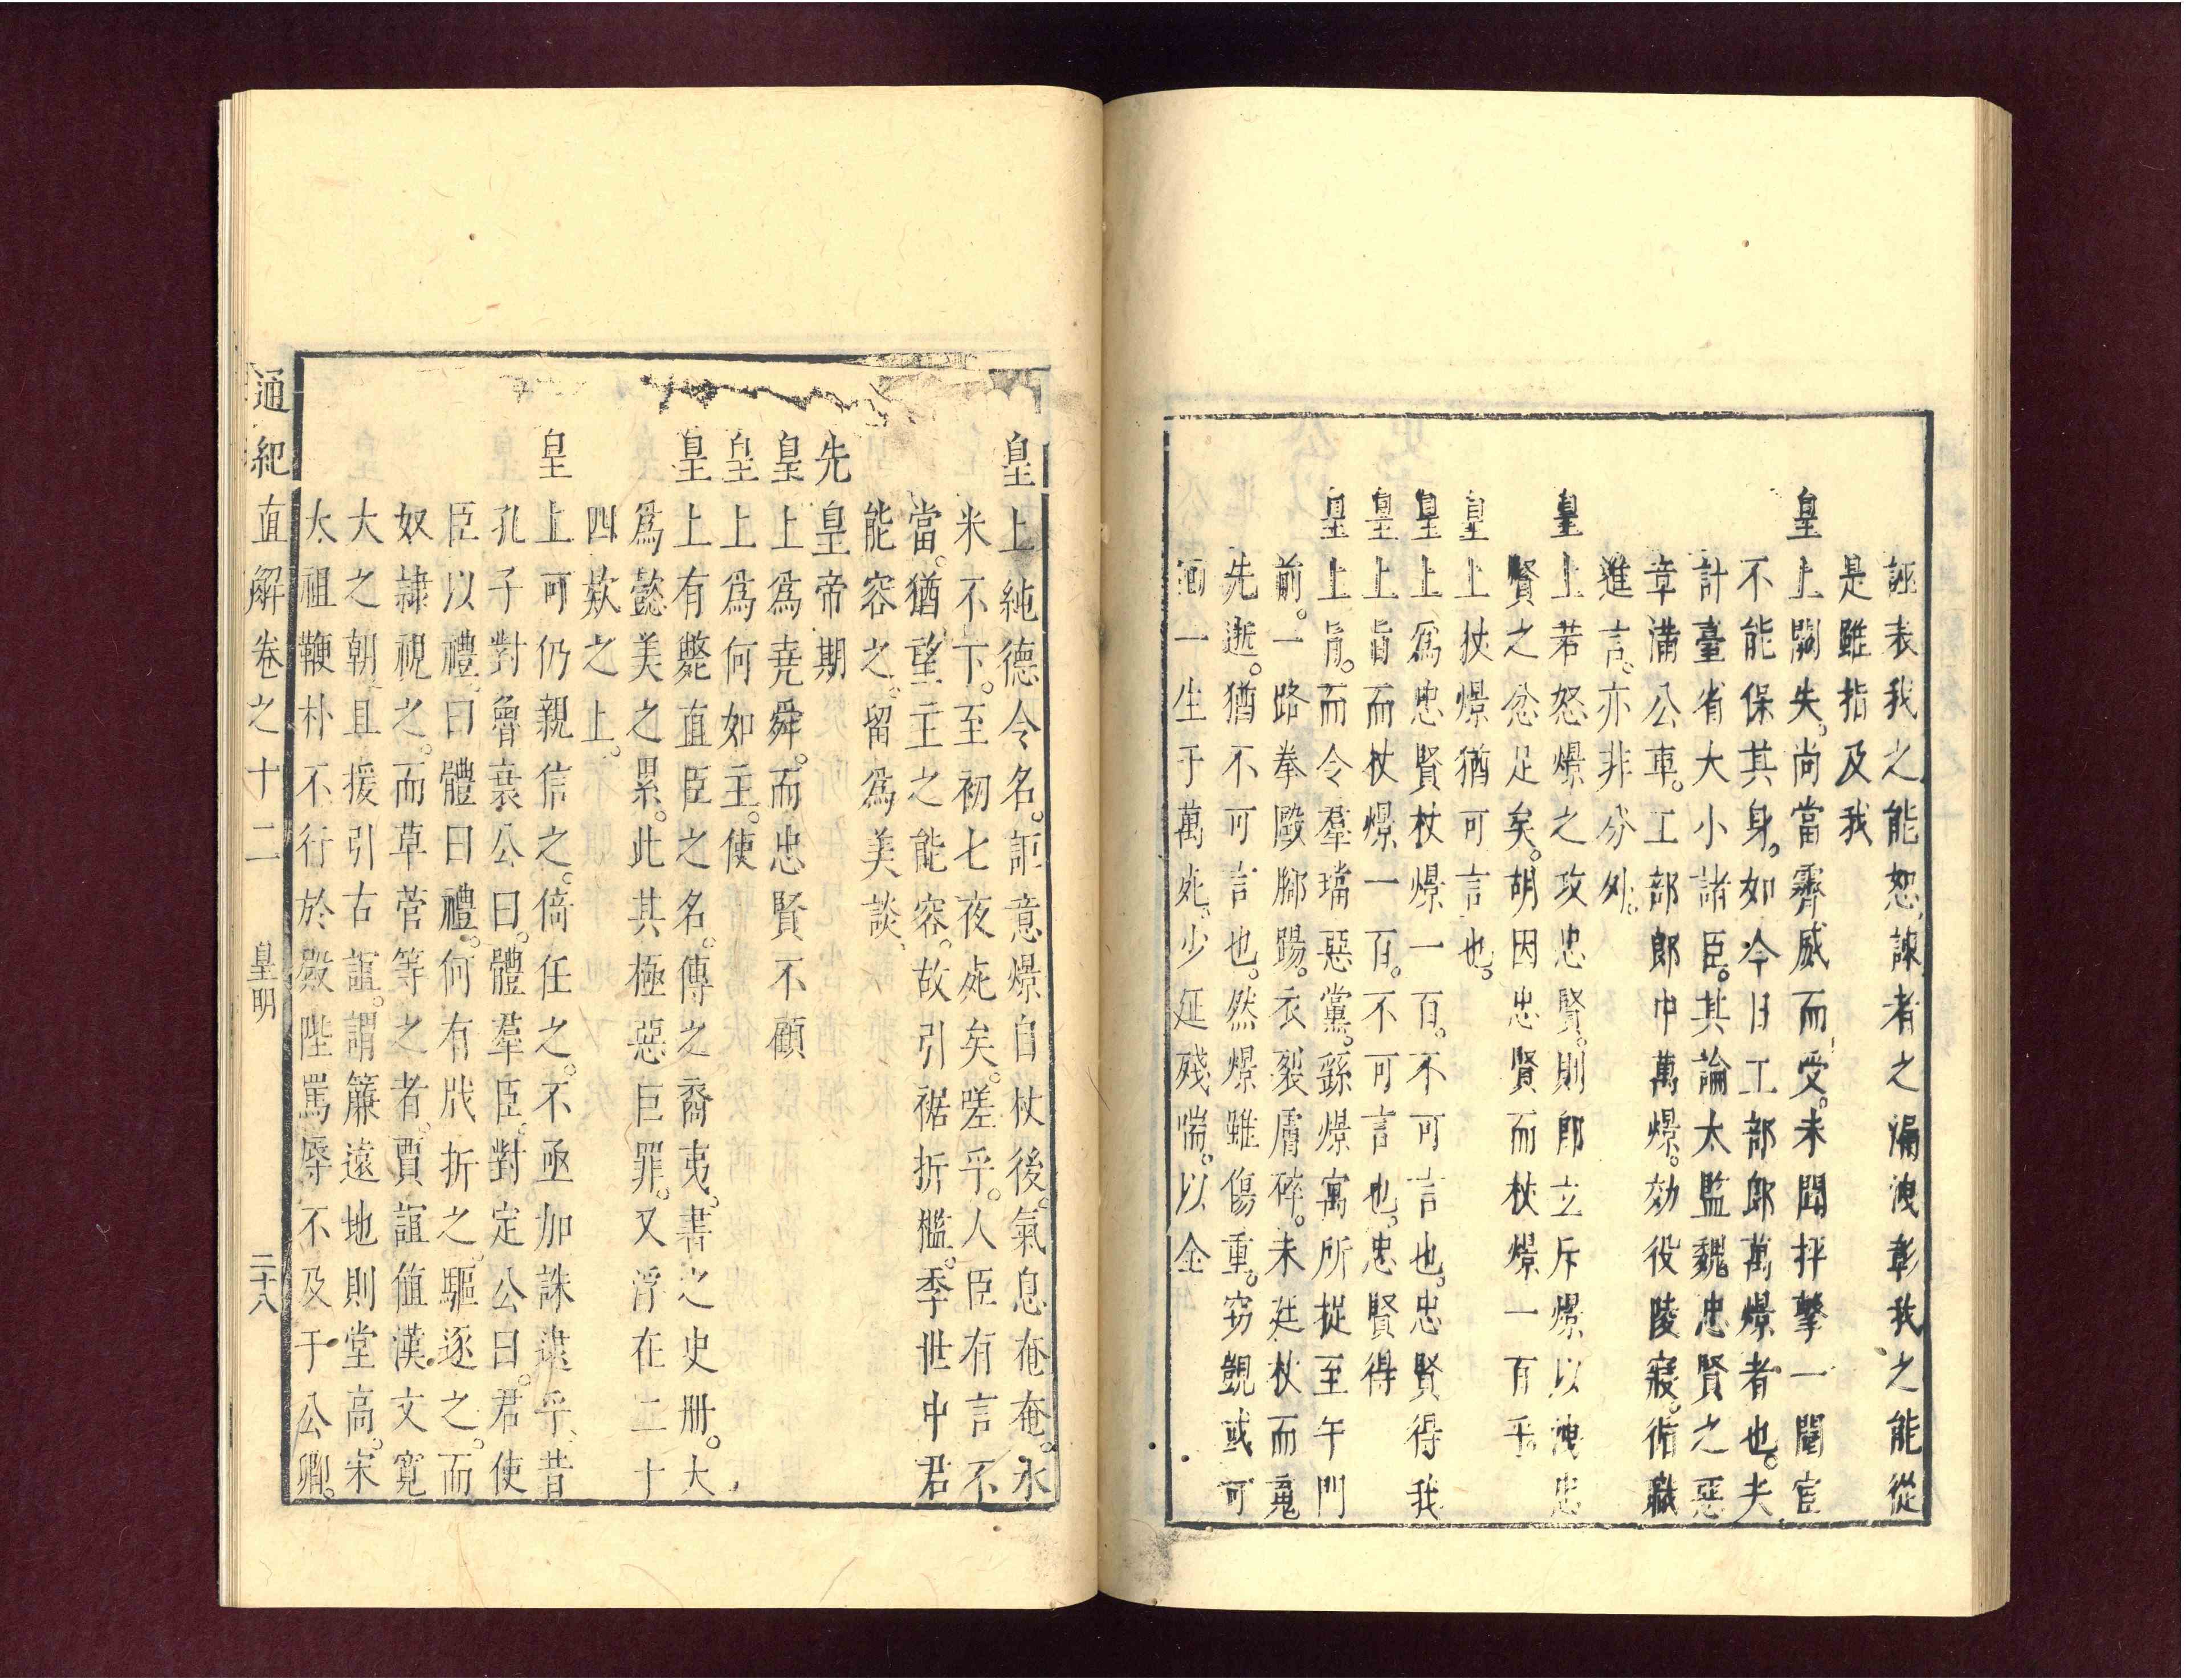 誣表我之能恕諫者之漏洩彰我之能從
是雖指及我
皇上闕失尚當霽威而受未聞抨擊一閹宦
不能保其身如今日工部郎萬燝者也夫
計臺省大小諸臣其論太監魏忠賢之惡
章滿公車工部郎中萬燝效役陵寢循職
進言亦非分外
皇上若怒燝之攻忠賢則郎立斥燝以洩忠
賢之忿足矣胡因忠賢而杖燝一百乎
皇上杖燝猶可言也
皇上爲忠賢杖燝一百不可言也忠賢得我
皇上旨而杖燝一百不可言也忠賢得
皇上旨而令羣璫惡黨繇燝寓所摐至午門
前一路拳毆腳踢衣裂膚碎未廷杖而䰟
先逝猶不可言也然燝雖傷重窃覬或可
一生于萬死少延殘喘以全
皇上純德令名詎意燝自杖後氣息奄奄水
米不下至初七夜死矣嗟乎人臣有言不
當猶望主之能容故引裾折檻季世中君
能容之留爲美談
先皇帝期
皇上爲堯舜而忠賢不顧
皇上爲何如主使
皇上有斃直臣之名傳之裔夷書之史册大
爲懿美之累此其極惡巨罪又浮在二十
四欵之上
皇上可仍親信之倚任之不亟加誅逮乎昔
孔子對魯哀公曰體羣臣對定公曰君使
臣以禮曰體曰禮何有戕折之驅逐之而
奴隷視之而草菅等之者賈誼值漢文寬
大之朝且援引古誼謂簾遠地則堂高宋
太祖鞭朴不行於殿陛罵辱不及于公卿
通紀直解卷之十二 皇明 二十八